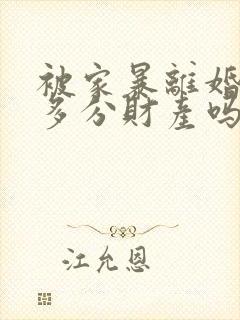 被家暴離婚
多分財產嗎
江允恩